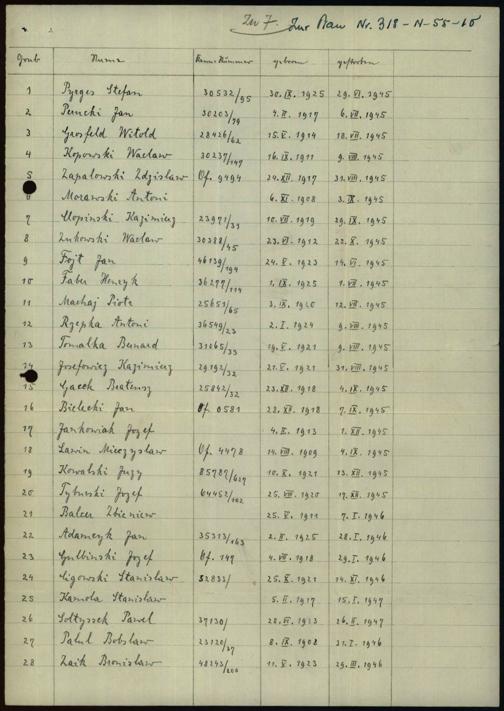 Zu 7. Zur Plan Nr. 318-N-55-10
Grab Name Kenn-Nummer geboren gestorben
1 Pyrges Stefan 30532/95 30. IX. 1925 29. VI. 1945
2 Perucki Jan 30203/79 4. II. 1917 6. VII. 1945
3 Grosfeld Witold 28426/62 15. V. 1914 18. VII. 1945
4 Kopowski Wacław 30237/149 16. IX. 1911 9. VIII. 1945
5 Zapalowski Zdzislaw Of. 9494 24. XII. 1917 31. VIII. 1945
6 Morawski Antoni 6. XI. 1908 3. IX. 1945
7 Kazimierz 23971/39 10. VIII. 1919 29. IX. 1945
8 Zukowski Wacław 30388/45 23. VI. 1912 22. X. 1945
9 Fojt Jan 46139/194 24. V. 1923 14. VI. 1945
10 Faber Henryk 36277/114 1. IX. 1925 1. VII. 1945
11 Machaj Piotr 25651/65 3. IX. 1920 12. VII. 1945
12 Rzepka Antoni 36549/23 2. I. 1924 9. VIII. 1945
13 Tomalka Bernard 31265/33 19. V. 1921 9. VIII. 1945
14 Josefowicz Kazimierz 29192/32 21. V. 1921 31. VIII. 1945
15 Gacek 25842/32 23. XII. 1918 4. IX. 1945
16 Bielecki Jan Of. 0581 22. XII. 1918 7. IX. 1945
17 Jankowiak Jozef 4. II. 1913 1. XII. 1945
18 Lawin Mieczyslaw Of. 4478 14. VIII. 1909 4. IX. 1945
19 Kowalski Jerzy 85787/627 10. X. 1921 13. XII. 1945
20 Tyburski Jozef 64452/102 25. VIII. 1920 17. XII. 1945
21 Balcer Zbigniew 25. V. 1911 7. I. 1946
22 Adamczyk Jan 35313/163 2. II. 1925 28. I. 1946
23 Gulbinski Jozef Of. 149 4. VII. 1918 29. I. 1946
24 Ligowski Stanislaw 52833/ 25. X. 1921 14. XI. 1946
25 Kamola Stanislaw 5. II. 1917 15. I. 1947
26 Soltyssek Pawel 37130/ 28. VI. 1913 26. II. 1947
27 Patul Bobslaw 23120/37 8. IX. 1908 31. I. 1946
28 Zaik Bronislaw 48243/208 11. V. 1923 29. III. 1946